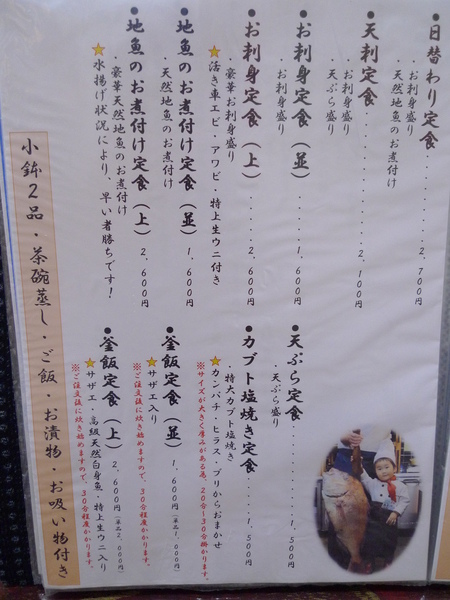 ●日替わり定食..........2,700円
・お刺身盛り
・天然地魚のお煮付け
●天刺定食..........2,100円
・お刺身盛り
・天ぷら盛り
●お刺身定食(並)......1,600円
・お刺身盛り
●お刺身定食(上)......2,600円
・豪華お刺身盛り
★活き車エビ・アワビ・特上生ウニ付き
●地魚のお煮付け定食(並)1,600円
・天然地魚のお煮付け
●地魚のお煮付け定食(上)2,600円
・豪華天然地魚のお煮付け
★水揚げ状況により、早い者勝ちです!
●天ぷら定食..........1,500円
・天ぷら盛り
●カブト塩焼き定食......1,500円
・特大カブト塩焼き
★カンパチ・ヒラス・ブリからおまかせ
※サイズが大きく厚みがある為、20分~30分掛かります。
●釜飯定食(並)1,600円(単品1,000円)
★サザエ入り
※ご注文後に炊き始めますので、30分程度かかります。
●釜飯定食(上)2,600円(単品2,000円)
★サザエ・高級天然白身魚・特上生ウニ入り
※ご注文後に炊き始めますので、30分程度かかります。
小鉢2品・茶碗蒸し・ご飯・お漬物・お吸い物付き